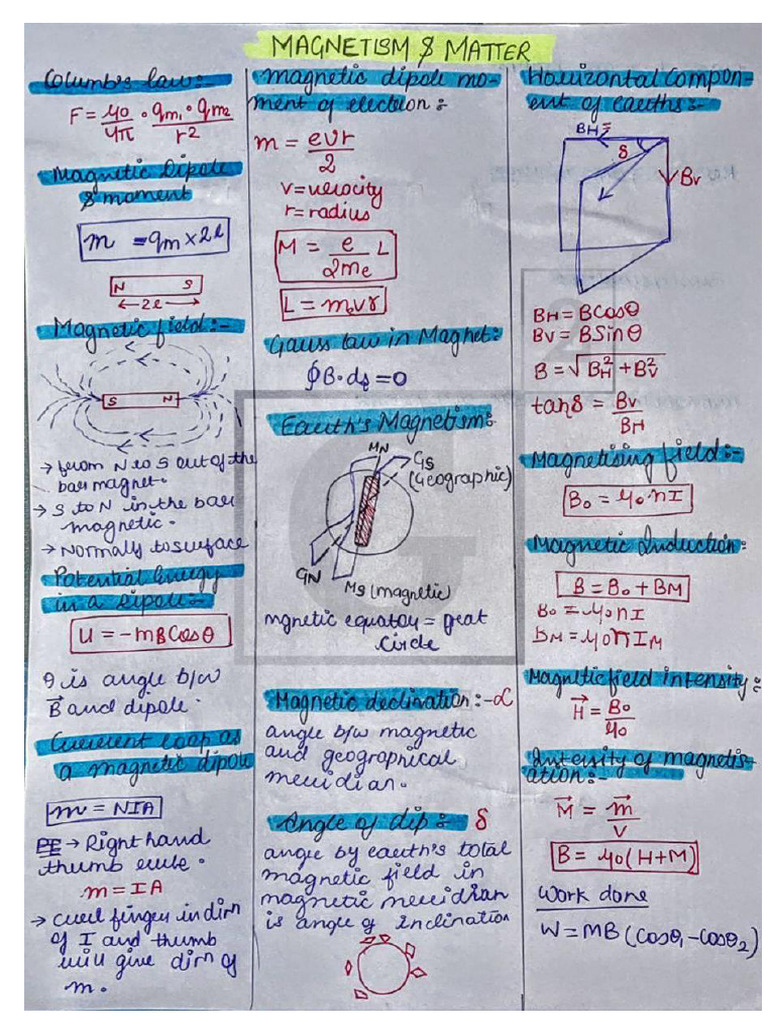 MAGNETISM & MATTER
Columb's law:-
F = μ0/4π · qm1 · qm2/r2
Magnetic Dipole
& moment
m = qm × 2l
N S
←2l→
Magnetic field:-
S N
→ from N to S out of the
bar magnet.
→ S to N in the bar
magnetic.
→ Normally to surface
Potential Energy
in a dipole:-
U = -mBCosθ
θ is angle b/w
B⃗ and dipole.
Current loop as
a magnetic dipole
m = NIA
→ Right hand
thumb rule.
m = IA
→ curl finger in dirn
of I and thumb
will give dirn of
m.
magnetic dipole mo-
ment of electron:-
m = evr/2
v = velocity
r = radius
M = e/2me L
L = mvr
Gauss law in Magnet:-
∮B·ds = 0
Earth's Magnetism:-
MN
GS
(Geographic)
GN
MS (magnetic)
mgnetic equator = great
circle
Magnetic declination:-α
angle b/w magnetic
and geographical
meridian.
Angle of dip:- δ
angle by earth's total
magnetic field in
magnetic meridian
is angle of Inclination
Horizontal Compon-
ent of earths:-
BH
δ
Bv
BH = BCosθ
BV = BSinθ
B = √BH2 + BV2
tanδ = BV/BH
Magnetising field:-
B0 = μ0nI
Magnetic Induction:-
B = B0 + BM
B0 = μ0nI
BM = μ0nIM
Magnetic field intensity:-
H⃗ = B0/μ0
Intensity of magnetis-
ation:-
M⃗ = m⃗/V
B = μ0(H+M)
Work done
W = MB (Cosθ1 - Cosθ2)